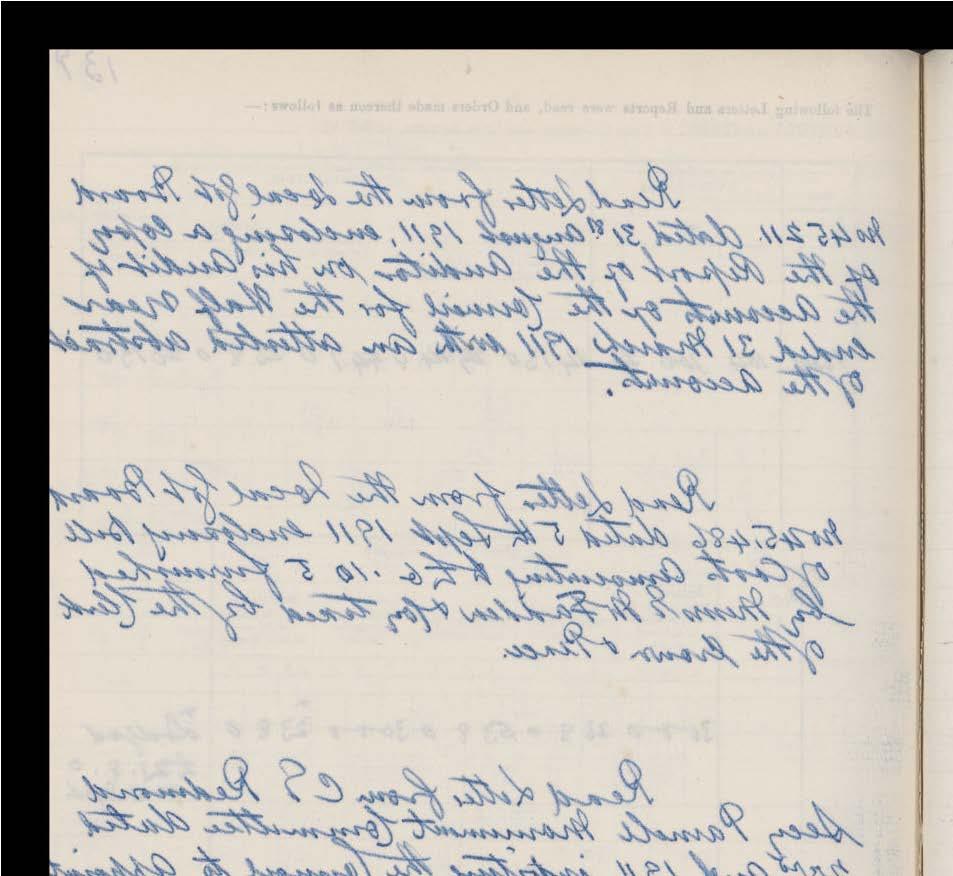 137
The following Letters and Reports were read, and Orders made thereon as follows:—
Read Letter from the Local Govt Board
No 45211 dated 31st August 1911, enclosing a Copy
of the Report of the Auditor on his Audit of
the Accounts of the Council for the Half Year
ended 31 March 1911 with an attested abstract
of the Accounts.
Read Letter from the Local Govt Board
No 45,486 dated 5th Sept 1911 enclosing bill
of Costs amounting to £6.10.5 furnished
by Messrs & Co, taxed by the Clerk
of the Crown & Peace
Read Letter from C S Redmond
Secy Parnell Monument Committee dated
1911 inviting the Council to appoint